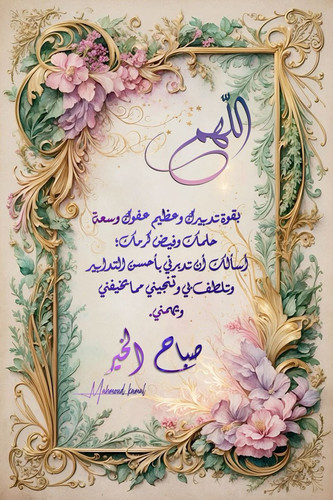 اللهم
بقوة تدبيرك وعظيم عفوك وسعة
حلمك وفيض كرمك؛
أسألك أن تدبرني بأحسن التدابير
وتلطف بي وتنجيني مما يخيفني
ويهمني.
صباح الخير
Mahmoud kamal